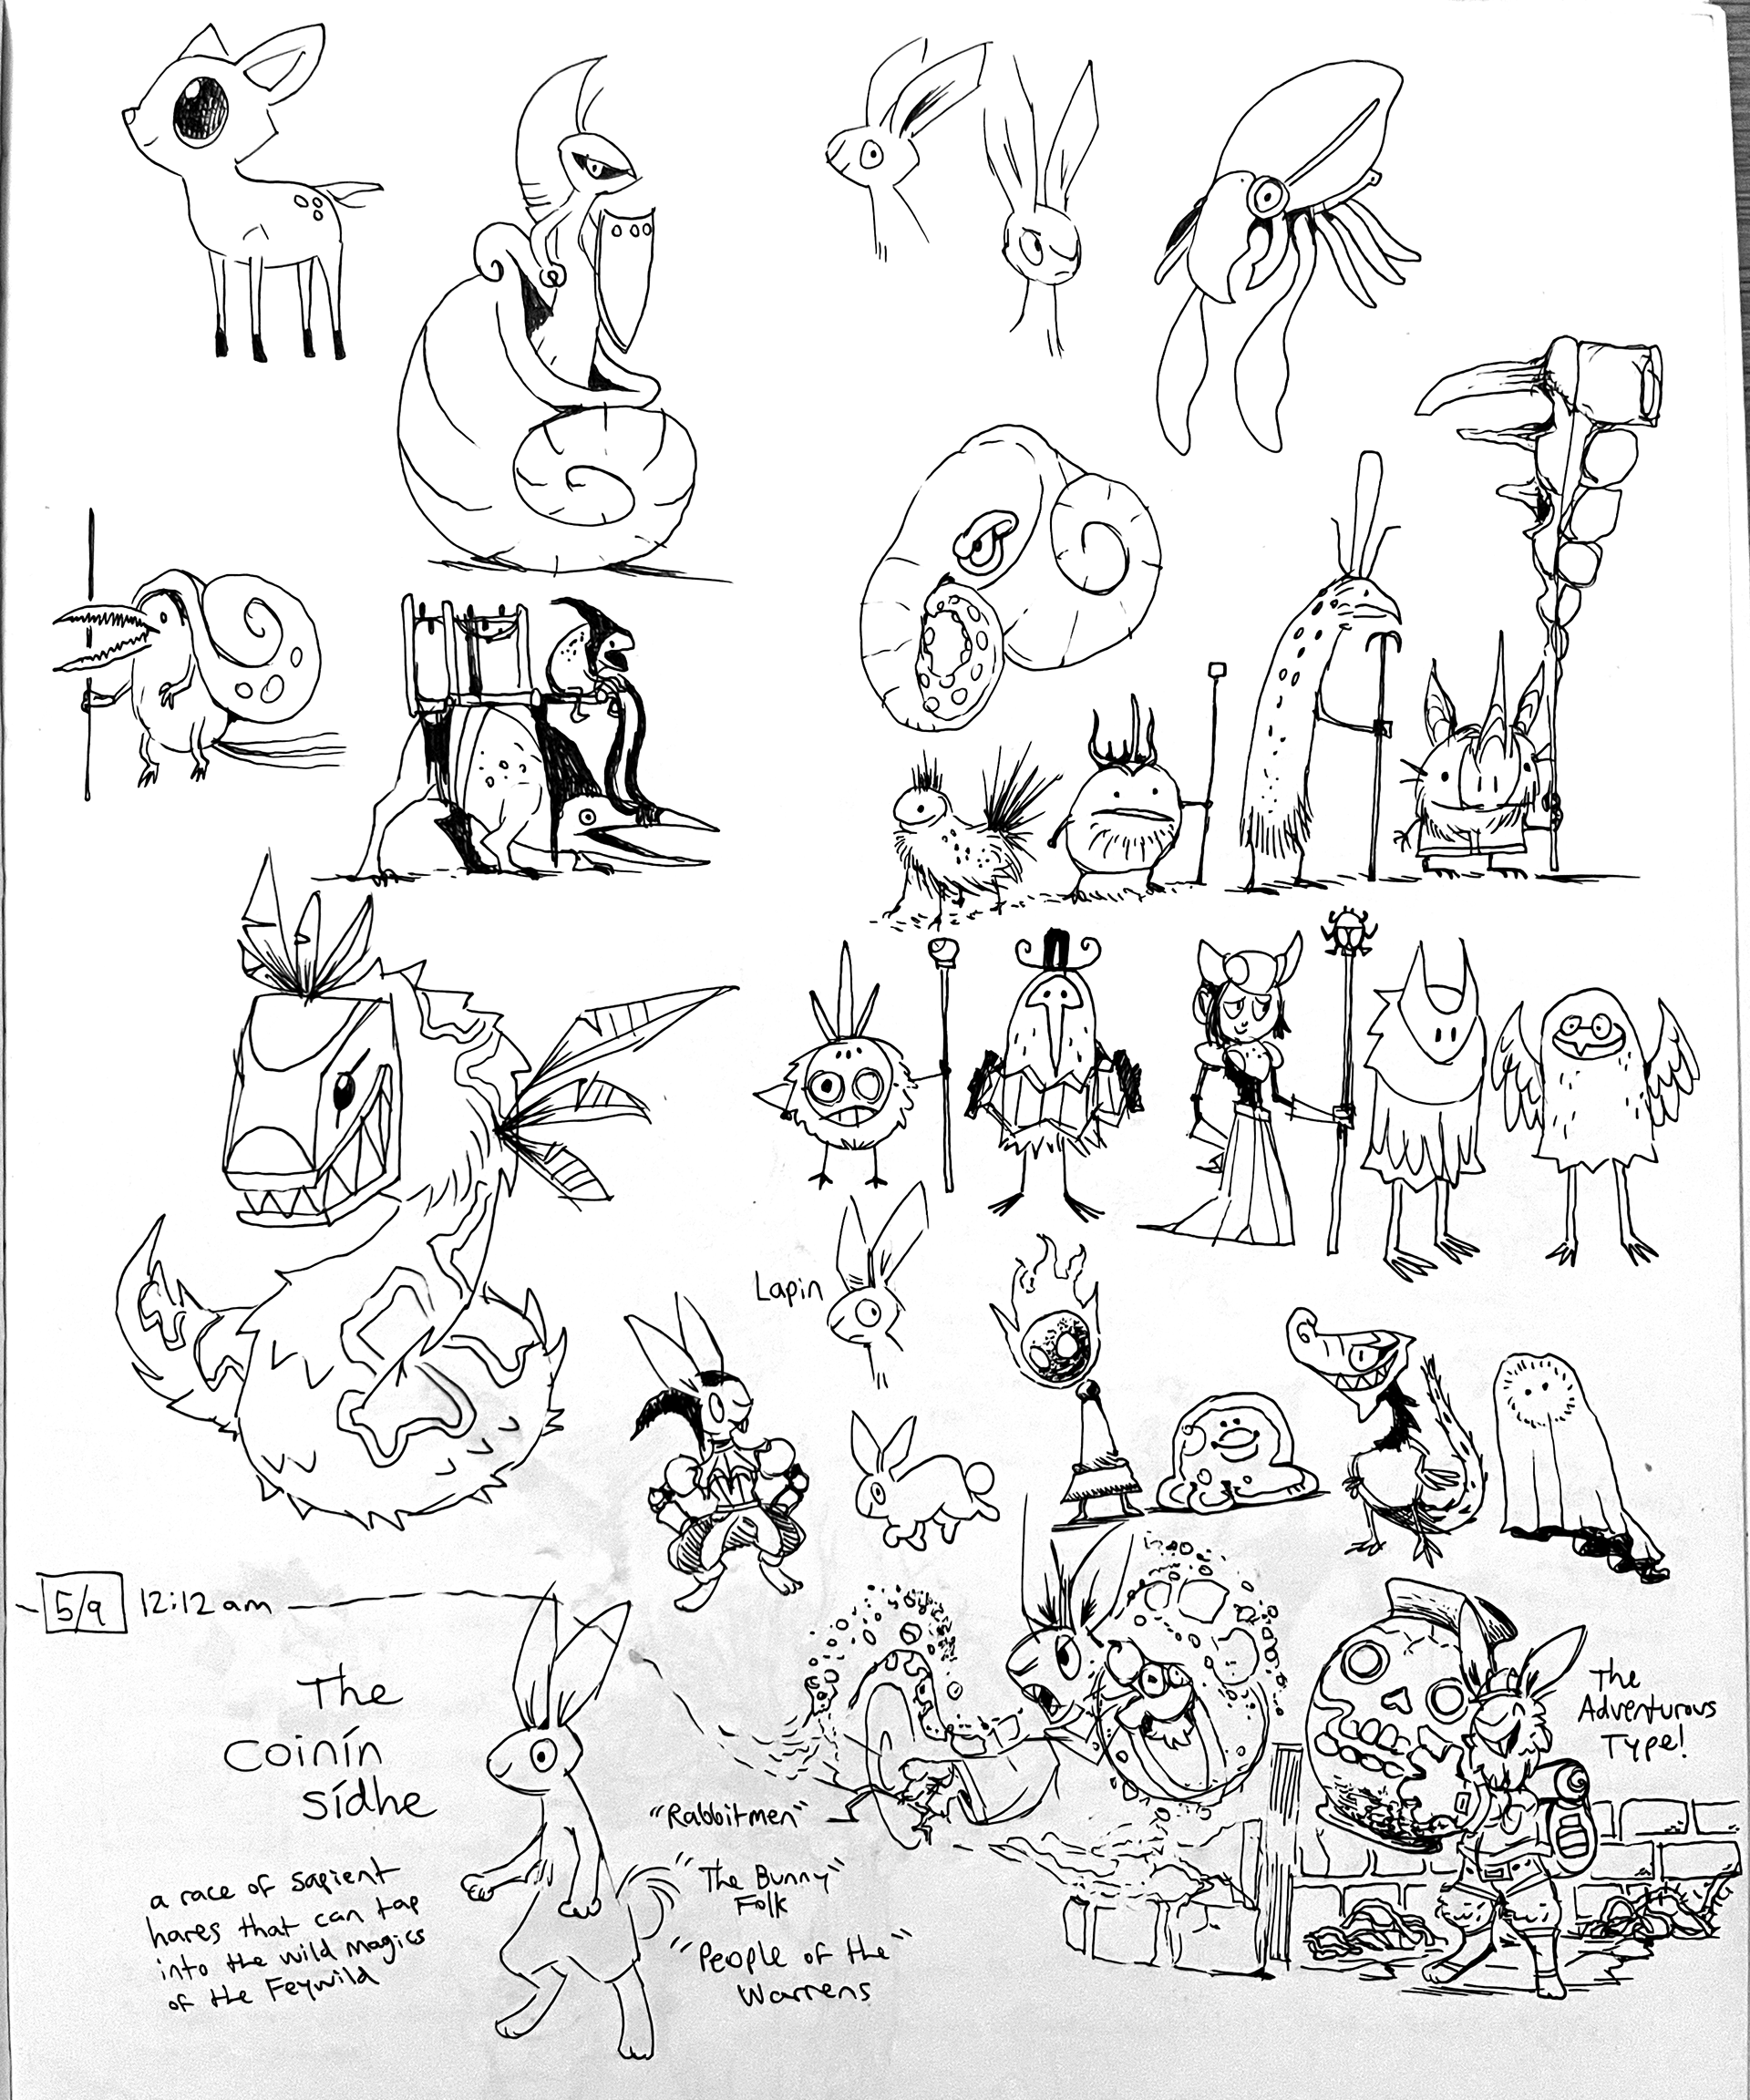 Lapin
5/9 12:12 am
The
Coinín
Sídhe
a race of sapient
hares that can tap
into the wild magics
of the Feywild
"Rabbitmen"
"The Bunny"
Folk
"People of the"
Warrens
The
Adventurous
Type!